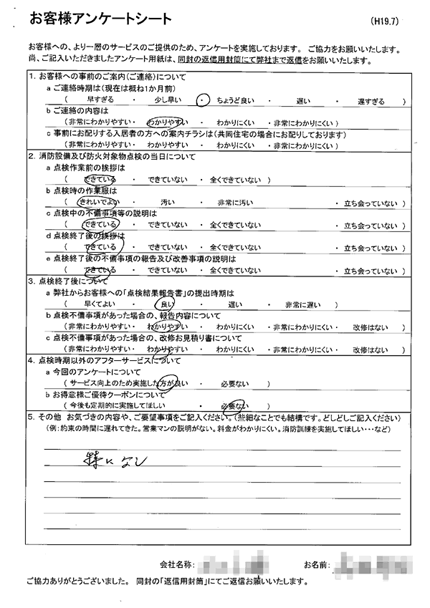 お客様アンケートシート
(H19.7)
お客様への、より一層のサービスのご提供のため、アンケートを実施しております。 ご協力をお願いいたします。
尚、ご記入いただきましたアンケート用紙は、同封の返信用封筒にて弊社まで返信をお願いいたします。
1. お客様への事前のご案内(ご連絡)について
a ご連絡時期は(現在は概ね1か月前)
( 早すぎる ・ 少し早い ・ ちょうど良い ・ 遅い ・ 遅すぎる )
b ご連絡の内容は
(非常にわかりやすい ・ わかりやすい ・ 非常にわかりにくい ・ 非常にわかりにくい )
c 事前にお配りする入居者の方への案内チラシは(共同住宅の場合にお配りしております)
(非常にわかりやすい ・ わかりやすい ・ わかりにくい ・ 非常にわかりにくい )
2. 消防設備及び防火対象物点検の当日について
a 点検作業前の挨拶は
( できている ・ できていない ・ 全くできていない )
b 点検時の作業服は
( きれいでよい ・ 汚い ・ 非常に汚い ・ 立ち会っていない )
c 点検中の不備事項等の説明は
( できている ・ できていない ・ 全くできていない ・ 立ち会っていない )
d 点検終了後の挨拶は
( できている ・ できていない ・ 全くできていない ・ 立ち会っていない )
e 点検終了後の不備事項の報告及び改善事項の説明は
( できている ・ できていない ・ 全くできていない ・ 立ち会っていない )
3. 点検終了後について
a 弊社からお客様への「点検結果報告書」の提出時期は
( 早くてよい ・ 良い ・ 遅い ・ 非常に遅い )
b 点検不備事項があった場合の、報告内容について
(非常にわかりやすい ・ わかりやすい ・ わかりにくい ・ 非常にわかりにくい・ 改修はない )
c 点検不備事項があった場合の、改修お見積り書について
(非常にわかりやすい ・ わかりやすい ・ わかりにくい ・ 非常にわかりにくい・ 改修はない )
4. 点検時期以外のアフターサービスについて
a 今回のアンケートについて
(サービス向上のため実施した方が良い ・ 必要ない )
b お得意様ご優待クーポンについて
( 今後も定期的に実施してほしい ・ 必要ない )
5. その他 お気づきの内容や、ご要望事項をご記入ください。(些細なことでも結構です。どしどしご記入ください)
(例:約束の時間に遅れてきた。営業マンの説明がない。料金がわかりにくい。消防訓練を実施してほしい・・・など)
特になし
会社名称:
お名前:
ご協力ありがとうございました。 同封の「返信用封筒」にてご返信お願いいたします。